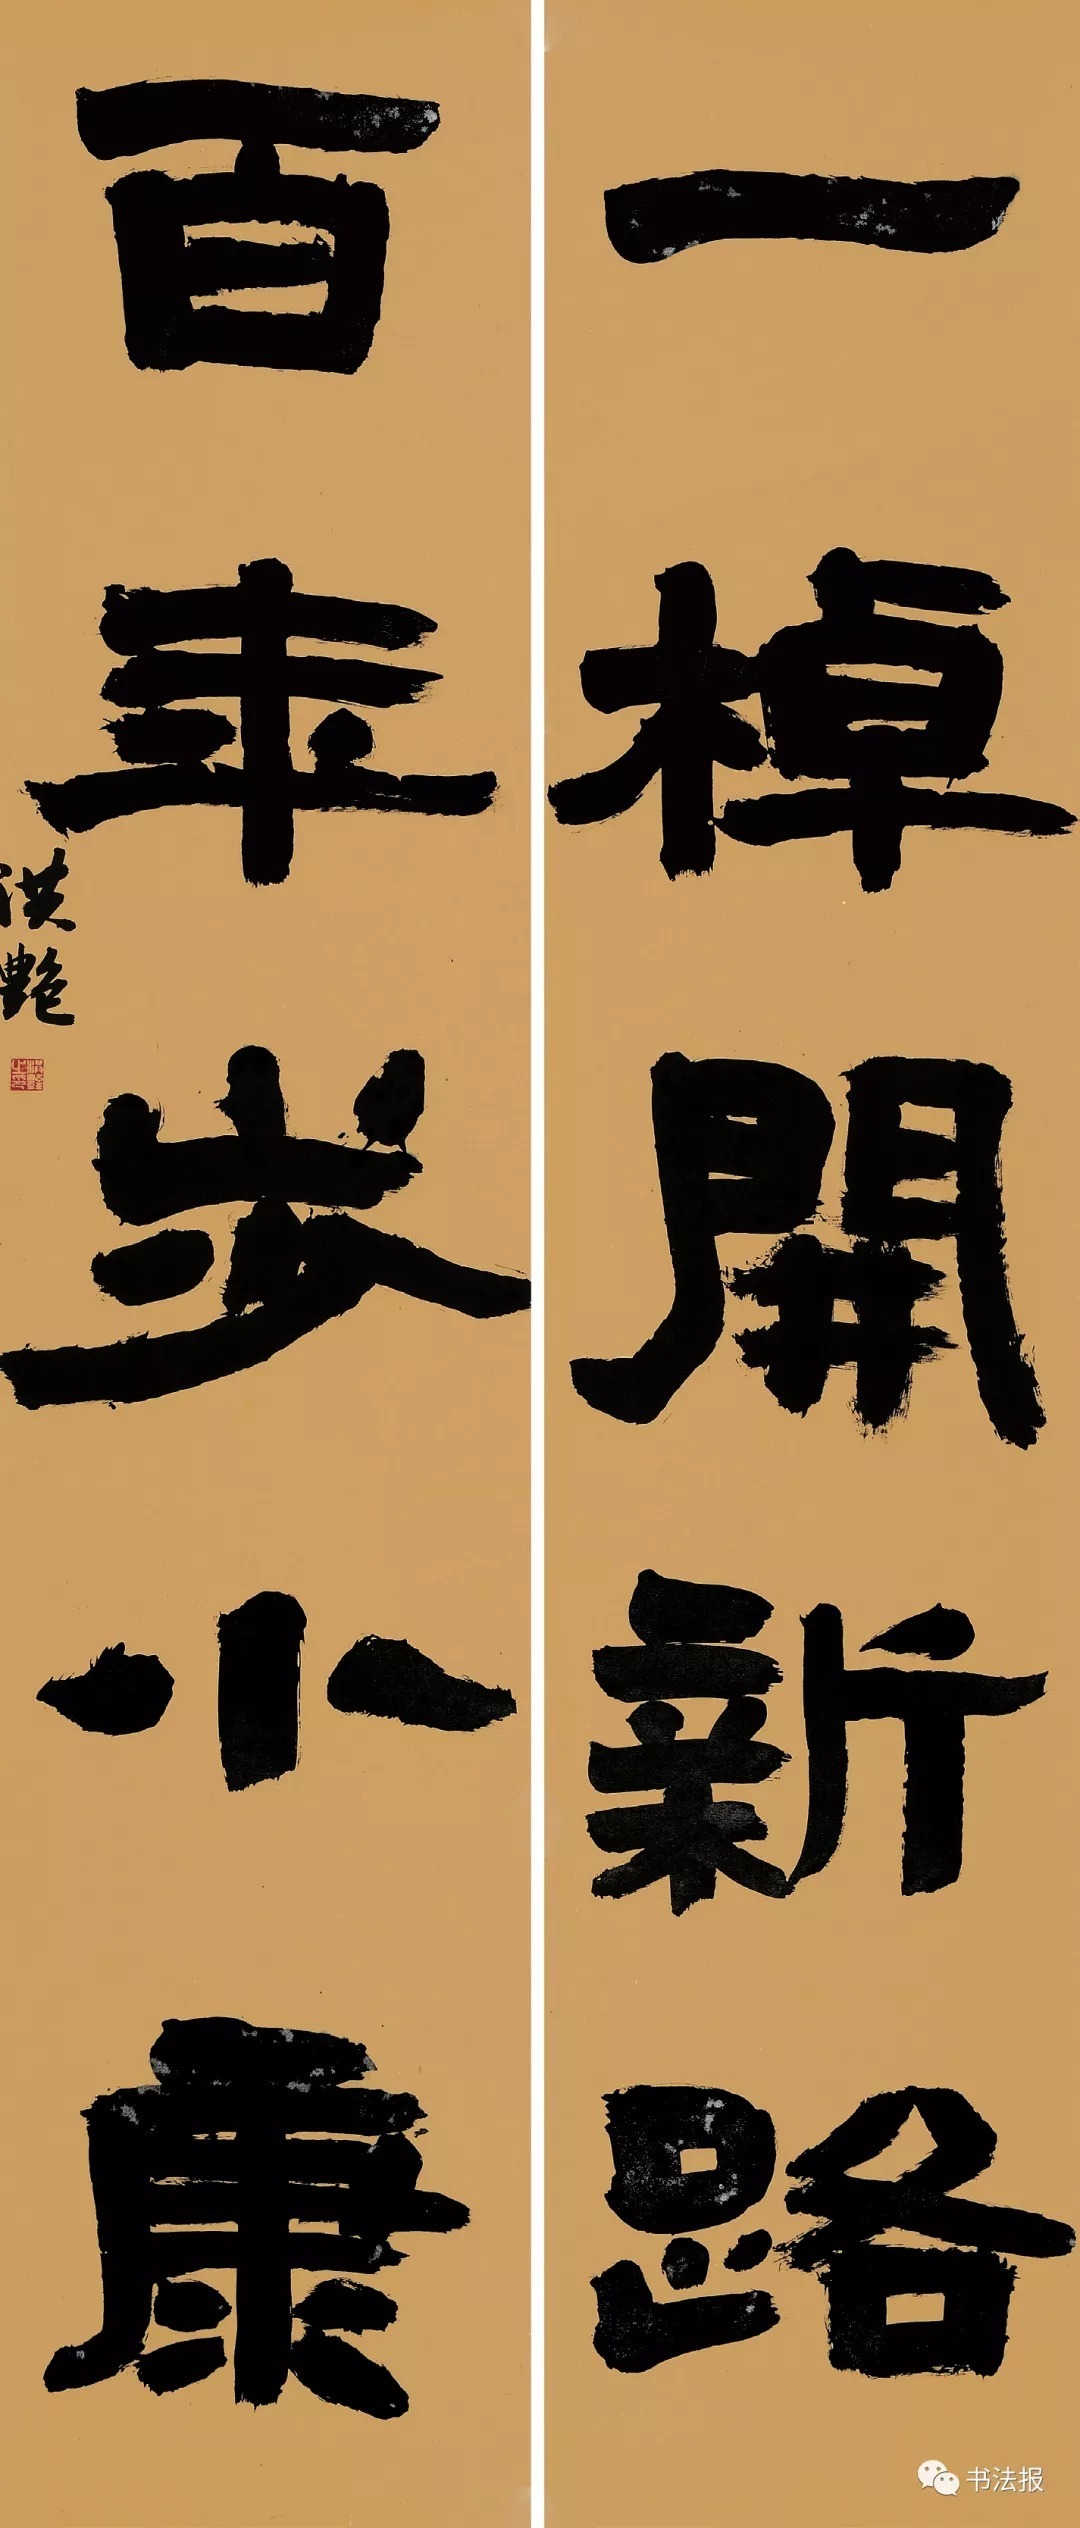 一棹開新路
百年步小康
洪艷
书法报